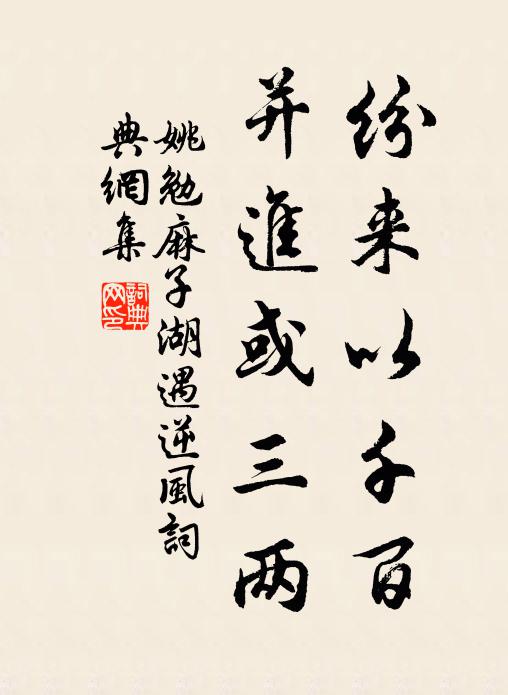 纷来以千百
并進或三两
姚勉麻子湖遇逆风詞
典網集
詞典
网印